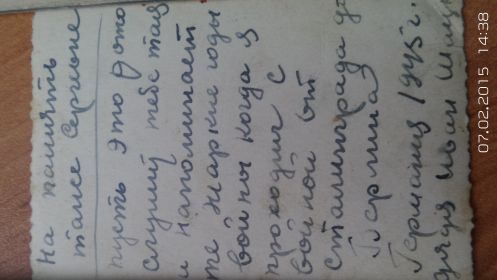 На память
тамсе Сергневе
пусть это фото
служит тебе там
и напоминает
те жаркие годы
войны когда я
проходил с
войной от
Сталинграда до
Берлина
Германия 1945 г.
дядя Иван
07.02.2015 14:38